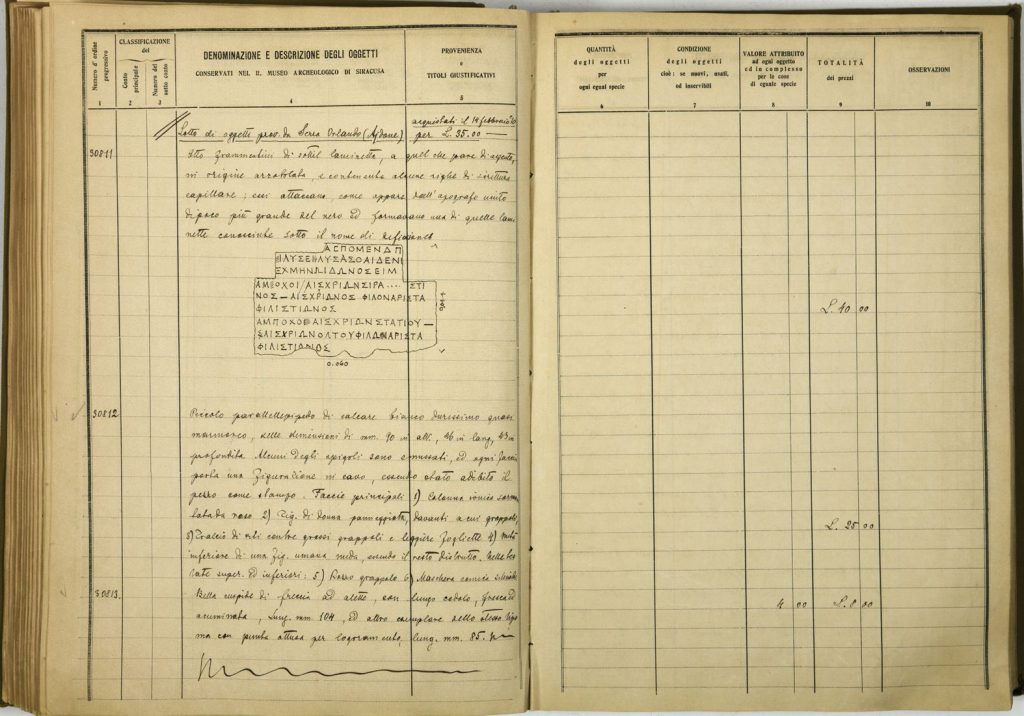 Numero d'ordine progressivo
CLASSIFICAZIONE
del
Conto principale
Numero del sotto conto
DENOMINAZIONE E DESCRIZIONE DEGLI OGGETTI
CONSERVATI NEL R. MUSEO ARCHEOLOGICO DI SIRACUSA
PROVENIENZA
e
TITOLI GIUSTIFICATIVI
1 2 3 4 5
acquistati il febbraio
Lotto di oggetti prov. da Serra Orlando (Ajdone) per L. 25.00
30811 Otto frammentini di sottil laminetta, a quel che pare di argento,
in origine arrotolata, e contenente alcune righe di scrittura
capillare; essi attaccano, come appare dall'apografo unito
di poco più grande del vero ed formavano una di quelle lami
nette conosciute sotto il nome di defixiones
ΑΣΠΟΜΕΝΔΠ
ΣΧΜΗΝΩΙΔΩΝΟΣΕΙΜ
ΝΟΣ–ΑΙΣΧΡΙΩΝΟΣ ΦΙΛΟΝΑΡΙΣΤΑ
ΦΙΛΙΣΤΙΩΝΟΣ
ΦΙΛΙΣΤΙΩΝΟΣ
0.040
30812 Piccolo parallelepipedo di calcare bianco durissimo quasi
marmoreo, delle dimensioni di mm. 90 in alt., 46 in larg., 43 in
profondità. Alcuni degli spigoli sono smussati, ed ogni faccia
porta una figurazione in cavo, essendo stato adibito il
pezzo come stampo. Faccie principali 1) Colonna ionica sormon
tata da vaso 2) Fig. di donna panneggiata, davanti a cui grappoli,
3) Tralcio di viti con tre grossi grappoli e leggiere fogliette 4) Metà
inferiore di una fig. umana nuda, essendo il resto distrutto. Nelle tes
tate super. ed inferiori: 5) Grosso grappolo 6) Maschera comica
30813. Bella cuspide di freccia ad alette, con lungo codolo,
acuminata, lung. mm. 104, ed altro esemplare dello stesso tipo
ma con punta ottusa per logoramento, lung. mm. 85.
QUANTITÀ
degli oggetti
per
ogni egual specie
CONDIZIONE
degli oggetti
cioè: se nuovi, usati,
od inservibili
VALORE ATTRIBUITO
ad ogni oggetto
ed in complesso
per le cose
di eguale specie
TOTALITÀ
dei prezzi
OSSERVAZIONI
6 7 8 9 10
L. 40 00
L. 25 00
4 00 L. 8 00